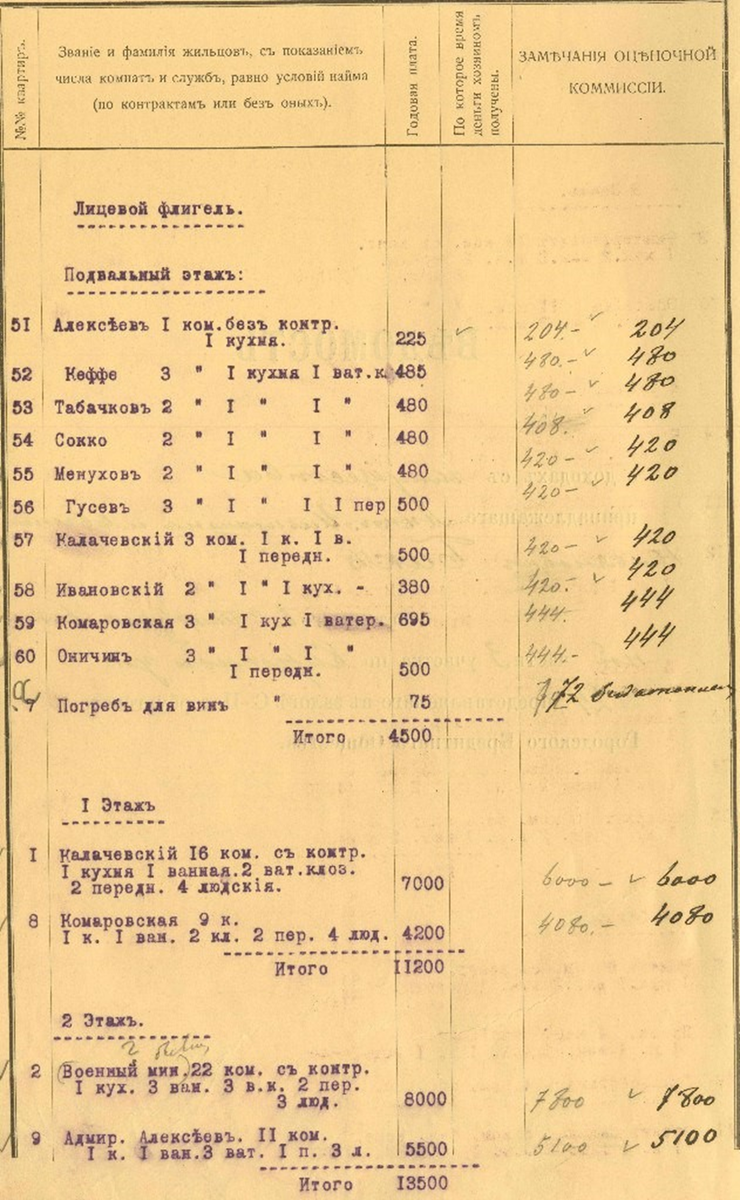 №№ квартиръ.
Званіе и фамилія жильцовъ, съ показаніемъ
числа комнатъ и службъ, равно условій найма
(по контрактамъ или безъ оныхъ).
Годовая плата.
По которое время
деньги хозяиномъ
получены.
ЗАМѢЧАНІЯ ОЦѢНОЧНОЙ
КОММИССІИ.
Лицевой флигель.
Подвальный этажъ:
51 Алексѣевъ I ком.безъ контр.
I кухня. 225 204.- 204
52 Кеффе 3 " I кухня I ват.к. 485 480.- 480
53 Табачковъ 2 " I " I " 480 480- 480
54 Сокко 2 " I " I " 480 408. 408
55 Менуховъ 2 " I " I " 480 420- 420
56 Гусевъ 3 " I " I I пер 500 420- 420
57 Калачевскій 3 ком. I к. I в.
I передн. 500 420- 420
58 Ивановскій 2 " I " I кух. - 380 420.- 420
59 Комаровская 3 " I кух I ватер. 695 444. 444
60 Оничинъ 3 " I " I "
I передн. 500 444.- 444
7 Погребъ для винъ " 75 72
Итого 4500
I Этажъ
I Калачевскій 16 ком. съ контр.
I кухня I ванная.2 ват.клоз.
2 передн. 4 людскія. 7000 6000 - 6000
8 Комаровская 9 к.
I к. I ван. 2 кл. 2 пер. 4 люд. 4200 4080.- 4080
Итого II200
2 Этажъ.
2 Военный мин.22 ком. съ контр.
I кух. 3 ван. 3 в.к. 2 пер.
3 люд. 8000 7800 7800
9 Адмир. Алексѣевъ. II ком.
I к. I ван.3 ват. I п. 3 л. 5500 5100 5100
Итого I3500